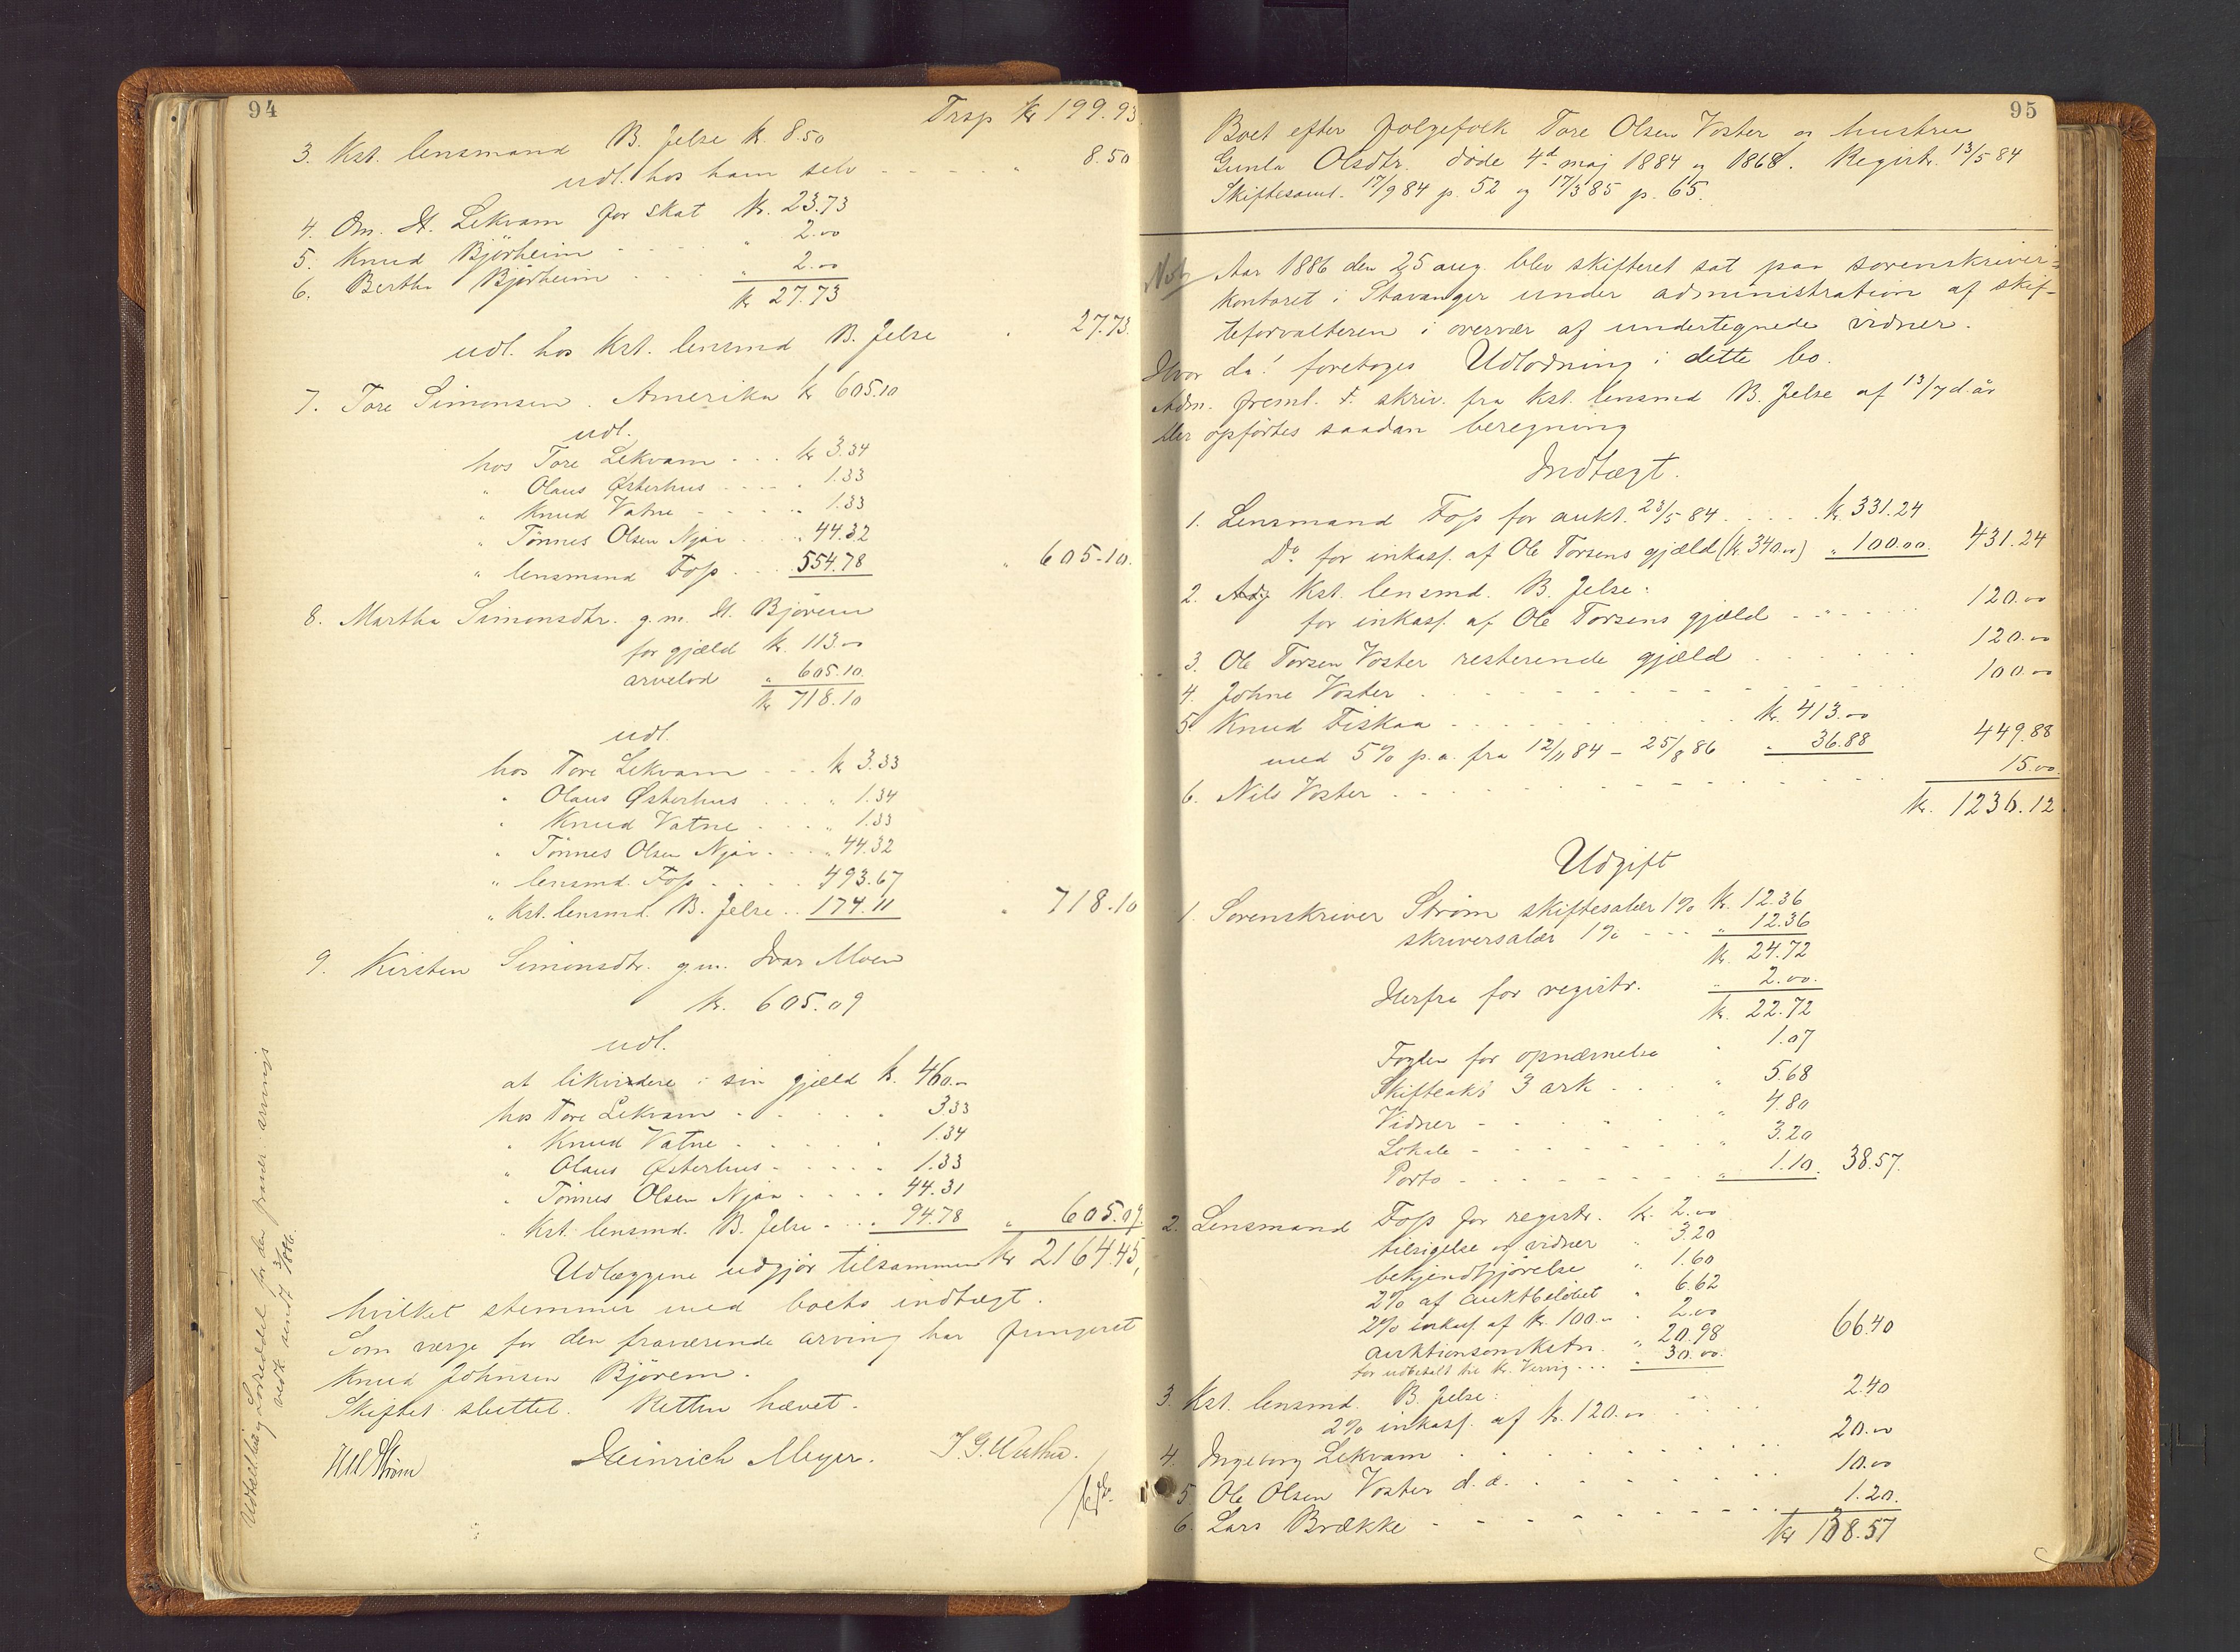 94
Trsp kr 199.93
3. Kst. lensmand B. Jelse kr. 8.50
udl. hos ham selv - - - - " 8.50
4. Om. H. Lekvam for skat kr. 23.73
5. Knud Bjørheim - - - - " 2.00
6. Bertha Bjørheim - - - - " 2.00
kr 27.73
udl. hos Kst. lensmd B. Jelse " 27.73.
7. Tore Simonsen. Amerika kr 605.10
udl.
hos Tore Lekvam - - . kr 3.34
" Olaus Østerhus - - - - " 1.33
" Knud Vatne - - - - " 1.33
" Tønnes Olsen Njaa - . . . 44.32
" lensmand Foss . . . 554.78 " 605.10.
8. Martha Simonsdtr. g.m. H. Bjørem
for gjæld kr. 113.00
arvelod " 605.10
kr 718.10
udl.
hos Tore Lekvam - - . kr 3.33
" Olaus Østerhus . . . . " 1.34
" Knud Vatne - . . . " 1.33
" Tønnes Olsen Njaa - . . . 44.32
" lensmd. Foss - . . . 493.67
" Kst. lensmd. B. Jelse . . 174.11 " 718.10
9. Kirsten Simonsdtr. g.m. Ivar Moen
kr. 605.09
udl.
at likvidere i sin gjæld kr. 460.00
hos Tore Lekvam - . . . . 3.33
" Knud Vatne - . . . . " 1.34
" Olaus Østerhus - . . . . 1.33
" Tønnes Olsen Njaa - . . . . 44.31
" Kst. lensmd. B. Jelse - . . . 94.78 " 605.09.
Udlæggene udgjør tilsammen kr 2164.45,
hvilket stemmer med boets indtægt.
Som værge for den fraværende arving har fungeret
Knud Johnsen Bjørem.
Skiftet sluttet. Retten hævet.
Heinrich Meyer.
95
Boet efter folgefolk Tore Olsen Voster og hustru
Gunla Olsdtr. døde 4de maj 1884 og 1868. Registr. 13/5 84
Skiftesaml. 17/9 84 p. 52 og 17/3 85 p. 65.
Aar 1886 den 25 aug. blev skifteret sat paa sorenskriver-
kontoret i Stavanger under administration af skif-
teforvalteren i overvær af undertegnede vidner.
Hvor da! foretoges Udlodning i dette bo.
Adm. freml. t. skriv. fra Kst. lensmd B. Jelse af 13/7 d. år
Her opførtes saadan beregning
Indtægt.
1. Lensmand Foss for aukt. 23/5 84 . . . . . kr. 331.24
Do for inkass. af Ole Torsens gjæld (kr. 340.00) " 100.00. 431.24
2. Kst. lensmd. B. Jelse:
for inkass. af Ole Torsens gjæld - - " - - - - - 120.00
3. Ole Torsen Voster resterende gjæld . . . . . . 120.00
4. Johne Voster . - - - - - - - - 100.00
5. Knud Fiskaa - . . . . . . . . kr. 413.00
med 5% p.a. fra 12/11 84 - 25/8 86 " 36.88 449.88
6. Nils Voster . - - - - - - - - 15.00.
kr. 1236.12
Udgift
1. Sorenskriver Strøm skiftesalær 1% kr. 12.36
skriversalær 1% - - - " 12.36
kr. 24.72
Herfra for registr. " 2.00.
kr. 22.72
Fogden for opnævnelse " 1.07
Skifteakt 3 ark . . . " 5.68
Vidner - - - - - " 4.80
Lokale - - - - - " 3.20
Porto - - - - - " 1.10. 38.57.
2. Lensmand Foss for registr. kr. 2.00
tilsigelse og vidner " 3.20
bekjendtgjørelse " 1.60
2% af auktbeløbet " 6.62
2% inkass. af kr. 100.00 " 2.00
auktionsomkstn. " 20.98
for udbetalt til Kr. Vervig . . . " 30.00. 66.40
3. Kst. lensmd. B. Jelse:
2% inkass. af kr. 120.00 . . . . 2.40
4. Ingeborg Lekvam . . . . . . . . 20.00
5. Ole Olsen Voster d. æ. . . . . . . 10.00
6. Lars Brække - - - - - - - - 1.20.
kr 138.57
Udskrift og Lodseddel for den fravær. arving
vedk. sendt 3/9 1886.